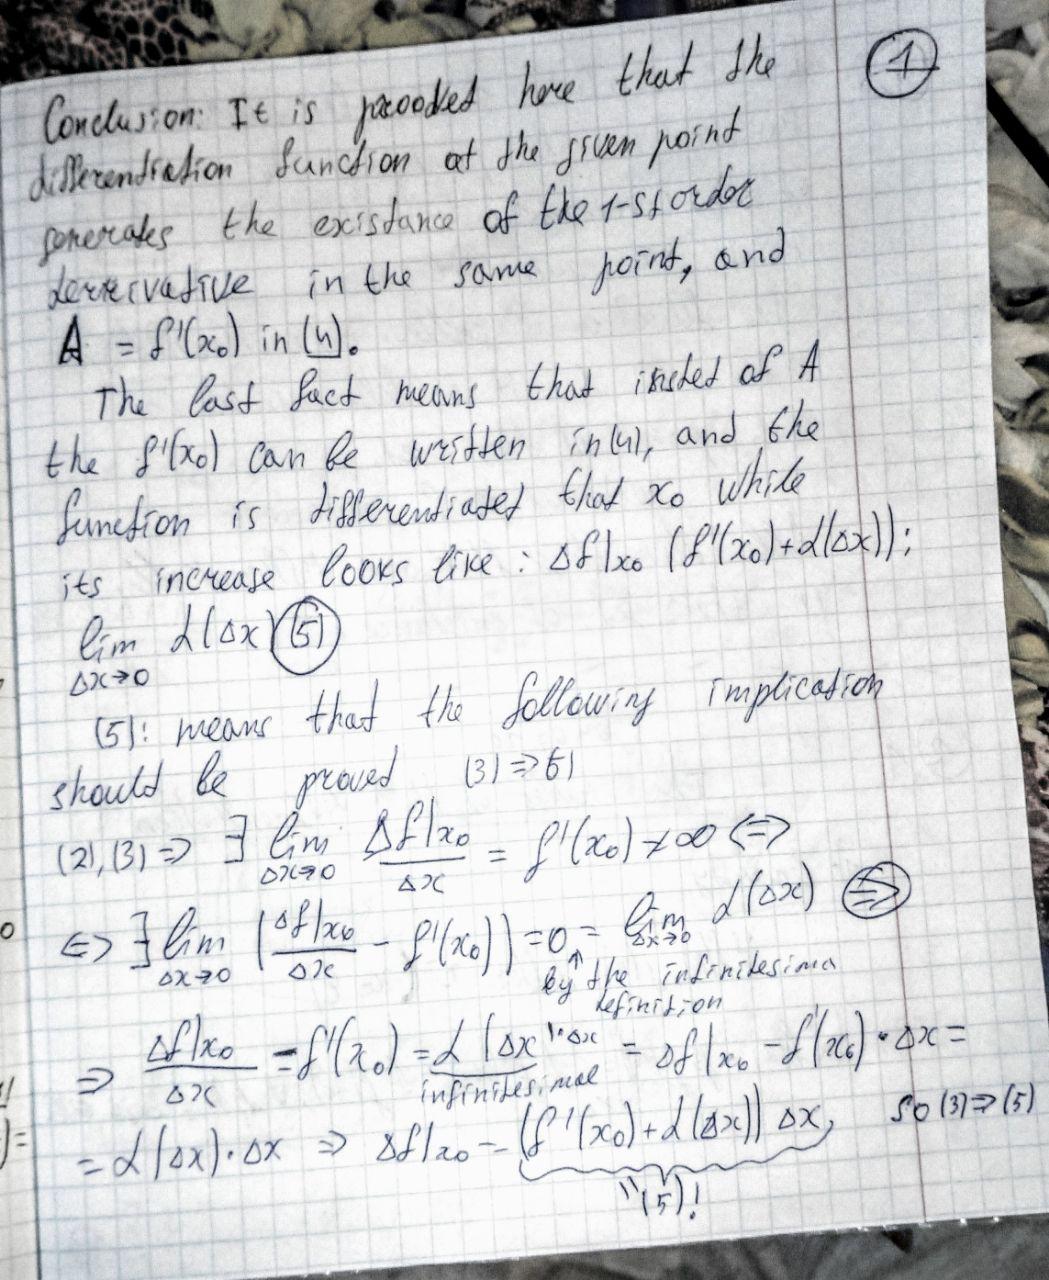 1
Conclusion: It is prooded here that the
differentiation function at the given point
generates the existance of the 1-st order
derrivative in the same point, and
A = f'(x₀) in (4).
The last fact means that insted of A
the f'(x₀) can be written in (4), and the
function is differentiated that x₀ while
its increase looks like : Δf|x₀ (f'(x₀)+α(Δx));
lim α(Δx) (5)
Δx→0
(5): means that the following implication
should be proved (3) => 5)
(2), (3) => ∃ lim Δx→0 Δf|x₀ / Δx = f'(x₀) ≠ ∞ <=>
<=> ∃ lim Δx→0 (Δf|x₀ / Δx - f'(x₀)) = 0 = lim Δx→0 α(Δx) =>
by ↑ the infinitesima
definition
=> Δf|x₀ / Δx - f'(x₀) = α(Δx) |·Δx = Δf|x₀ - f'(x₀)·Δx =
infinitesimal
= α(Δx)·Δx => Δf|x₀ = (f'(x₀)+α(Δx)) Δx, so (3) => (5)
"(5)!